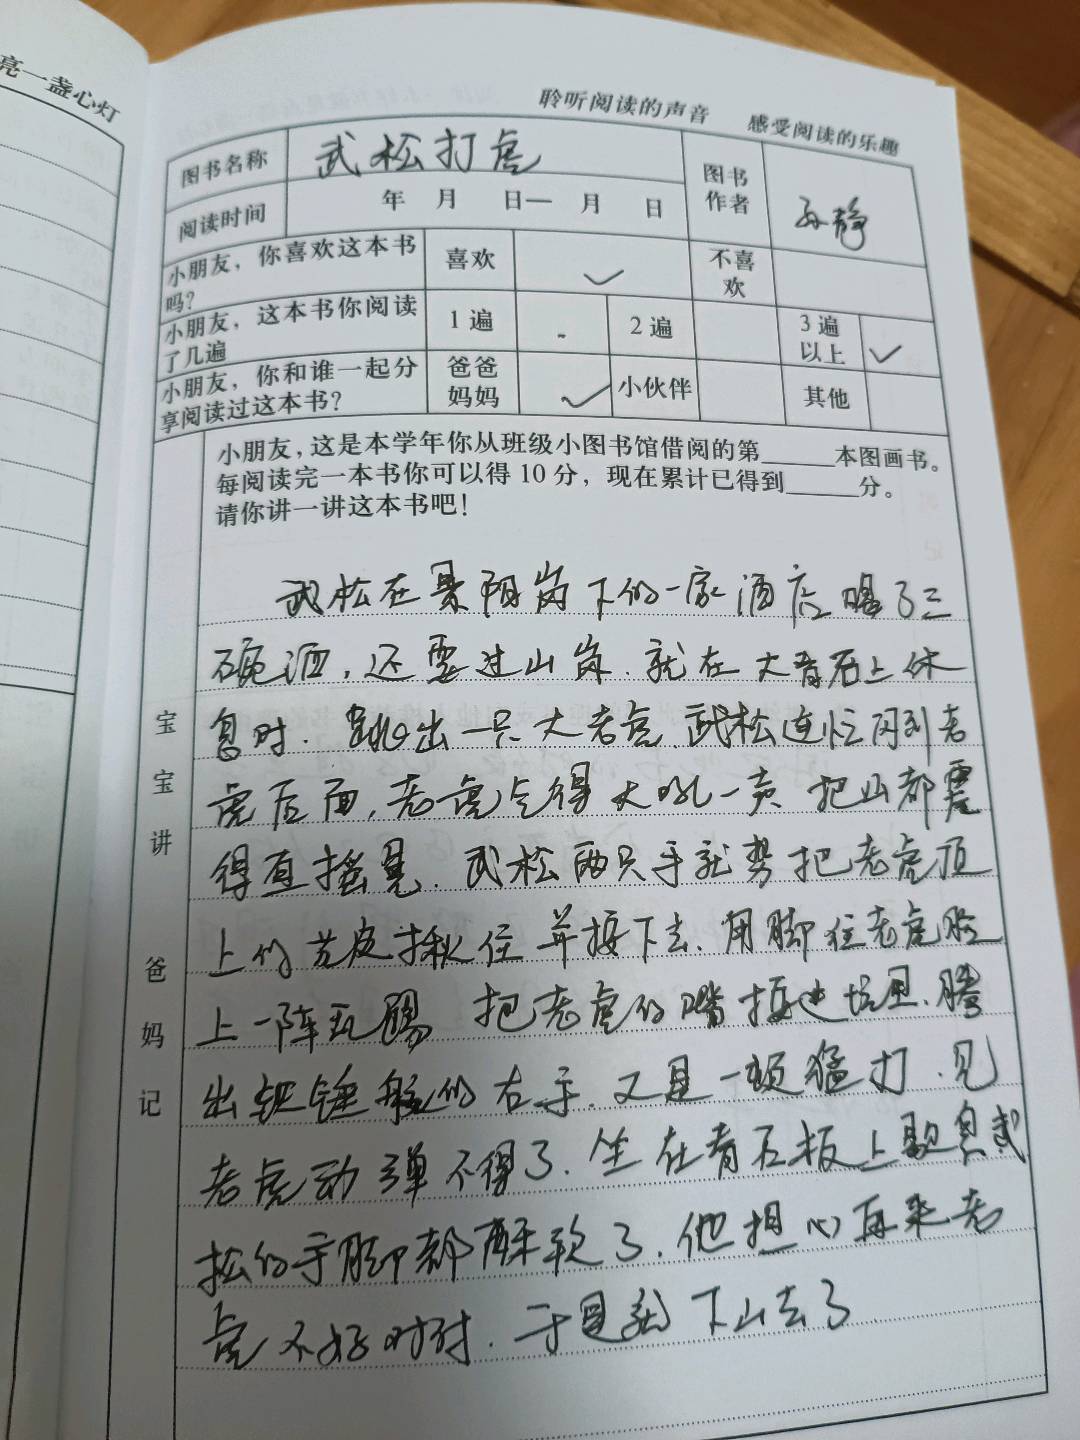 亮一盏心灯
聆听阅读的声音 感受阅读的乐趣
图书名称 武松打虎 图书作者 孙静
阅读时间 年 月 日— 月 日
小朋友，你喜欢这本书吗？ 喜欢 ✓ 不喜欢
小朋友，这本书你阅读了几遍 1遍 2遍 3遍以上 ✓
小朋友，你和谁一起分享阅读过这本书？ 爸爸妈妈 ✓ 小伙伴 其他
小朋友，这是本学年你从班级小图书馆借阅的第______本图画书。
每阅读完一本书你可以得10分，现在累计已得到______分。
请你讲一讲这本书吧！
宝宝讲 爸妈记
武松在景阳岗下的一家酒店喝了三
碗酒，还要过山岗.就在大青石上休
息时.跳出一只大老虎.武松连忙闪到老
虎后面,老虎气得大吼一声 把山都震
得直摇晃.武松两只手就势把老虎顶
上的花皮揪住 并按下去.用脚往老虎脸
上一阵乱踢 把老虎的嘴按进坑里.腾
出铁锤般的右手.又是一顿猛打.见
老虎动弹不得了.坐在青石板上歇息武
松的手脚都酥软了.他担心再来老
虎不好对付.于是就下山去了